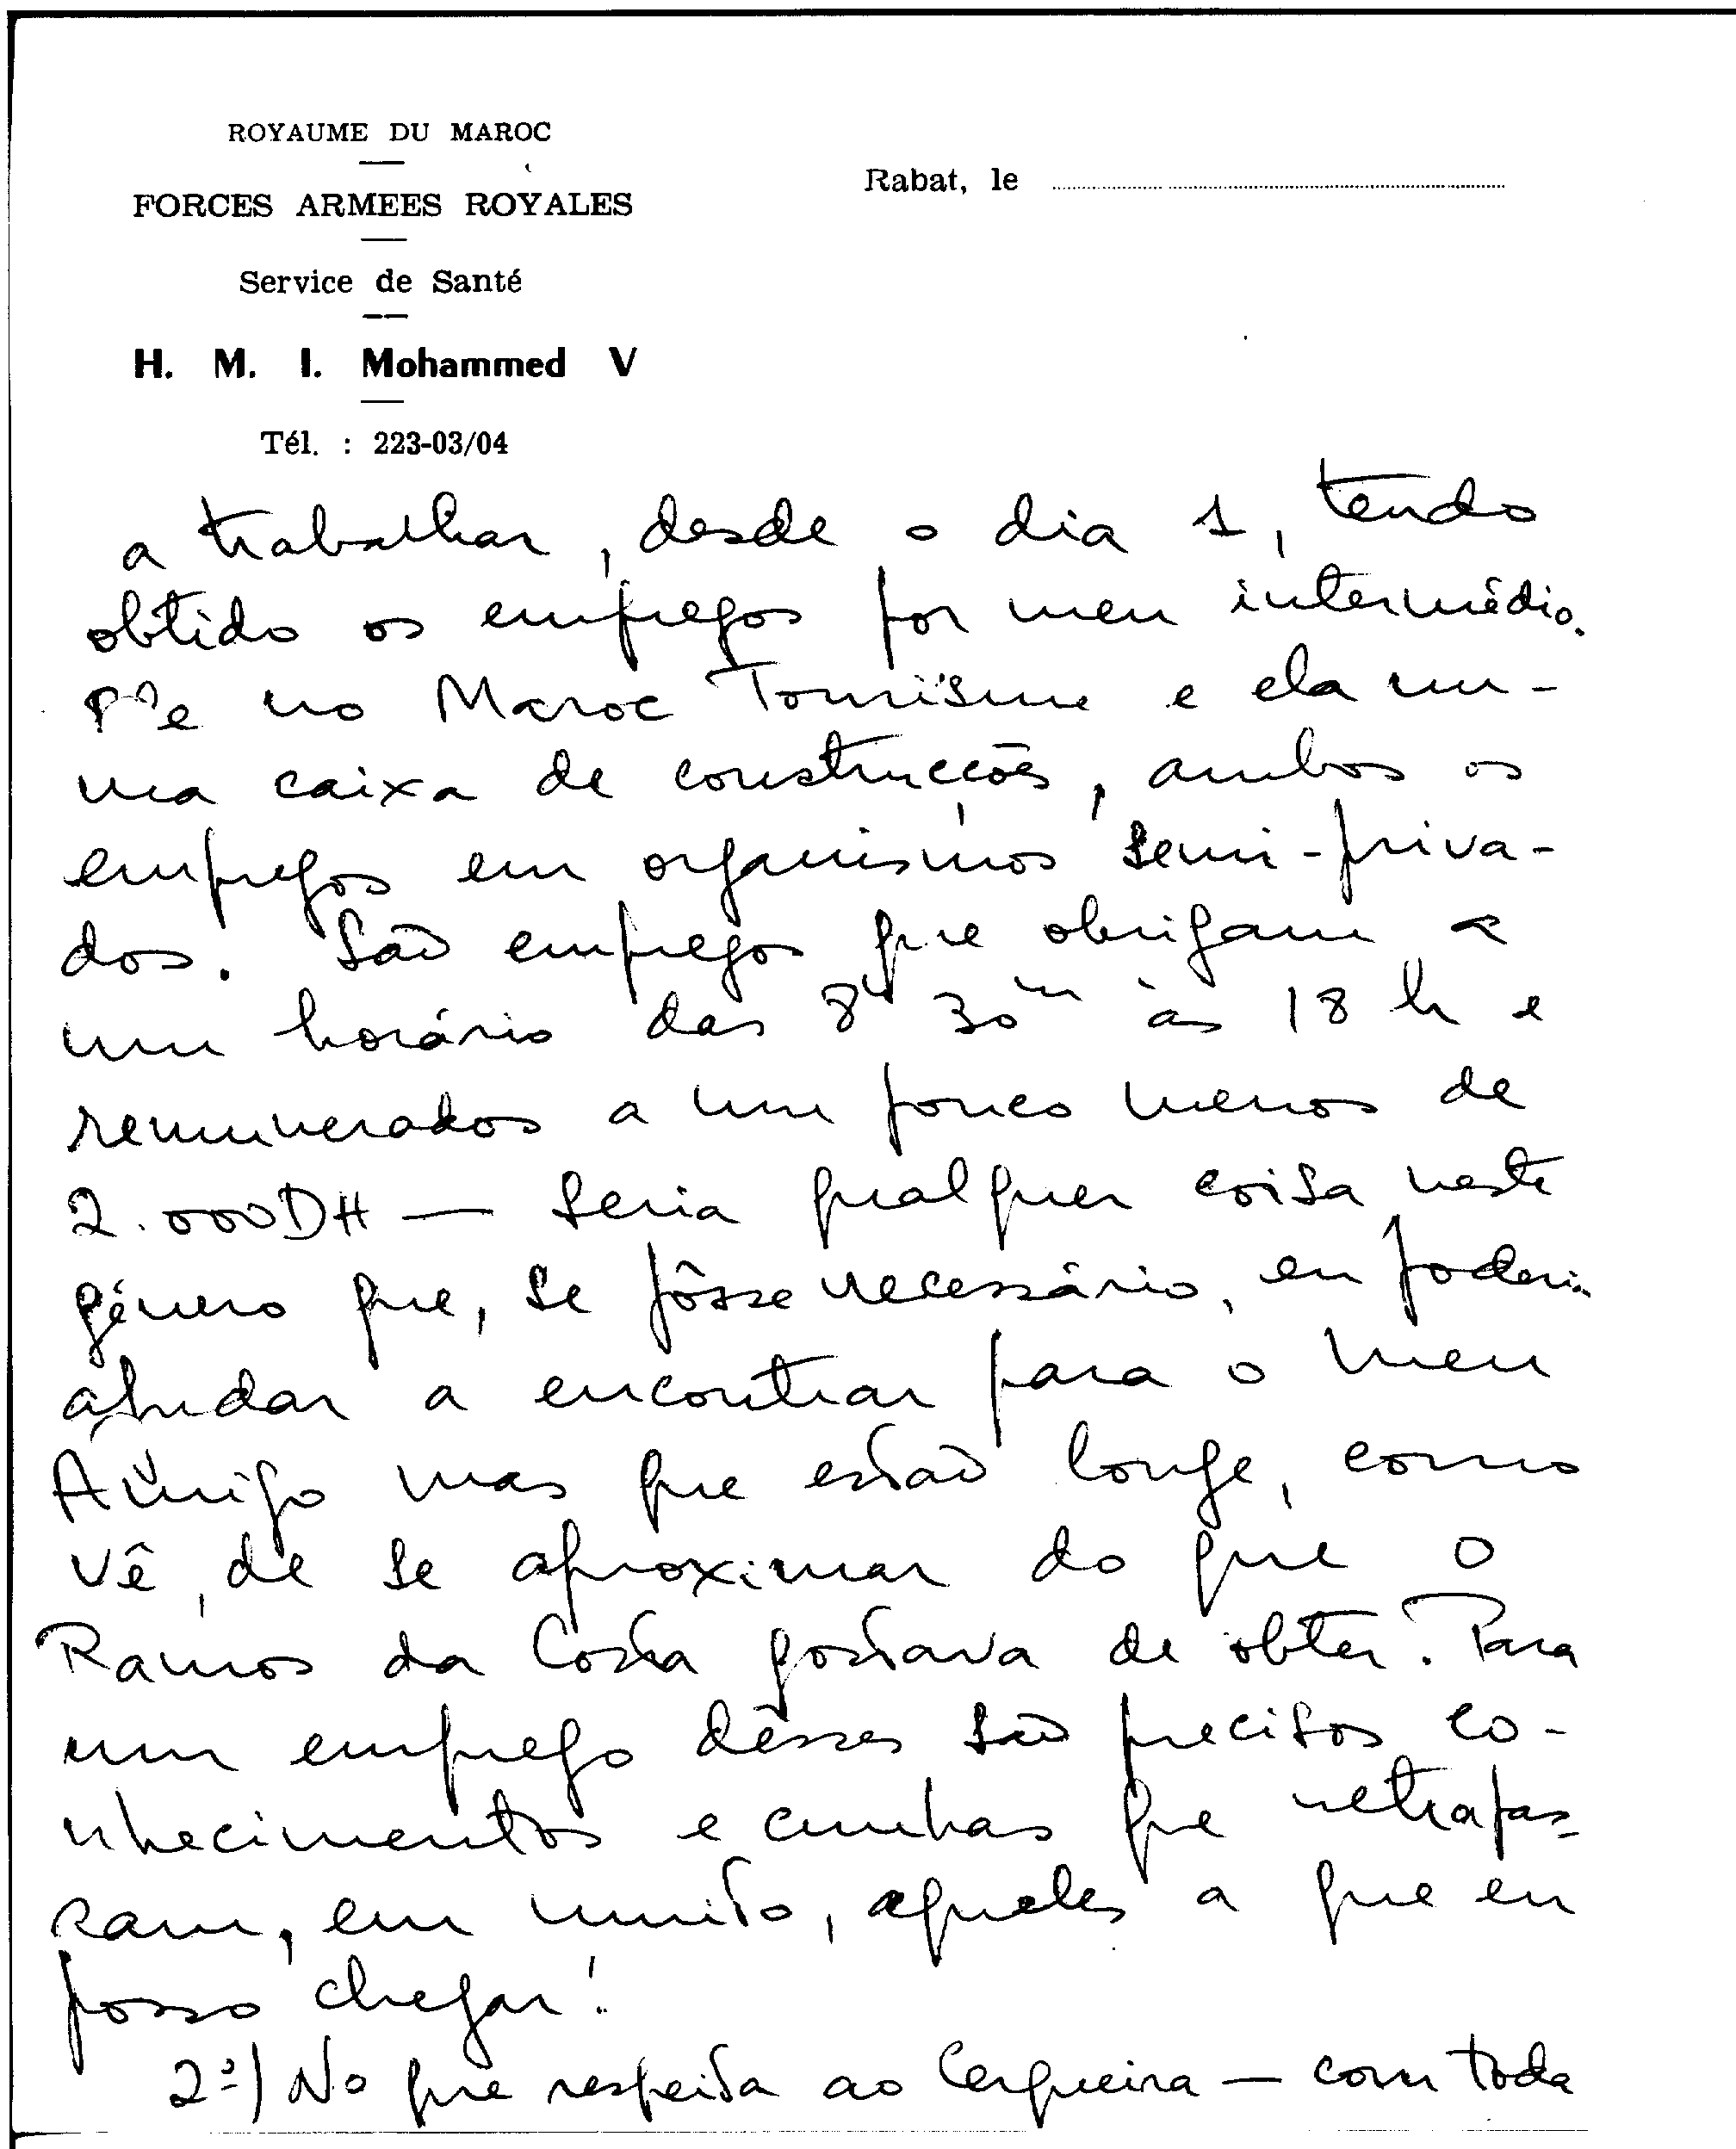 ROYAUME DU MAROC
FORCES ARMEES ROYALES
Service de Santé
H. M. I. Mohammed V
Tél. : 223-03/04
Rabat, le
a trabalhar, desde o dia 1, tendo
obtido os empregos por meu intermédio.
no Maroc Tourisme e ela nu-
ma caixa de construcções, ambos os
empregos em organismos semi-priva-
dos. São empregos que obrigam a
um horário das 8h 30m às 18 h e
remunerados a um pouco menos de
2.000DH — seria qualquer coisa neste
género que, se fôsse necessário, eu poderia
ajudar a encontrar para o meu
Amigo mas que estão longe, como
vê, de se aproximar do que o
Ramos da Costa gostava de obter. Para
um emprego dêsses são precisos co-
nhecimentos e cunhas que
em muito, aqueles a que eu
posso chegar!
2º) No que respeita ao Cerqueira — com toda